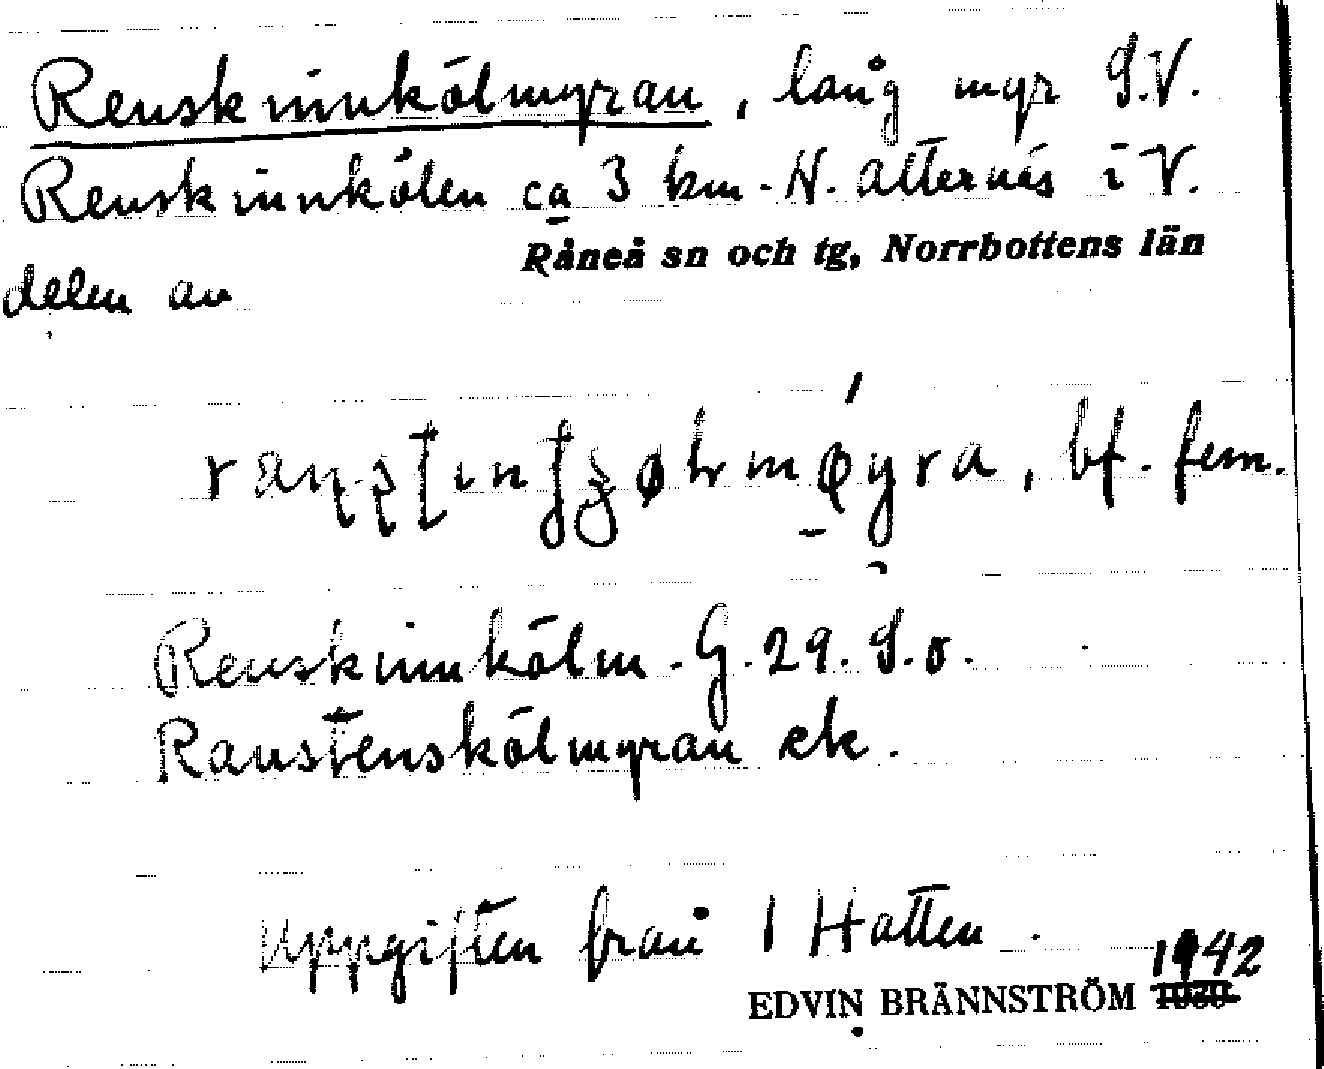 Renskinnkölmyran, lång myr S.V.
Renskinnkölen ca 3 km. N. Alternäs i V.
delen av Råneå sn och tg, Norrbottens län
bf. fem.
Renskinnkölm. G. 29. S.o.
Raustenskölmyran ek.
Uppgiften från 1 Hatten.
1942
EDVIN BRÄNNSTRÖM 1930